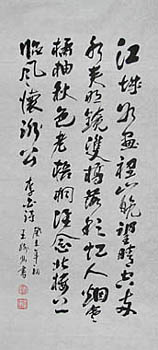 江城如畫裡山晚望晴空兩
水夾明鏡雙橋落彩虹人煙寒
橘柚秋色老梧桐誰念北樓上
臨風懷謝公 李白詩
癸未年秋
王 書